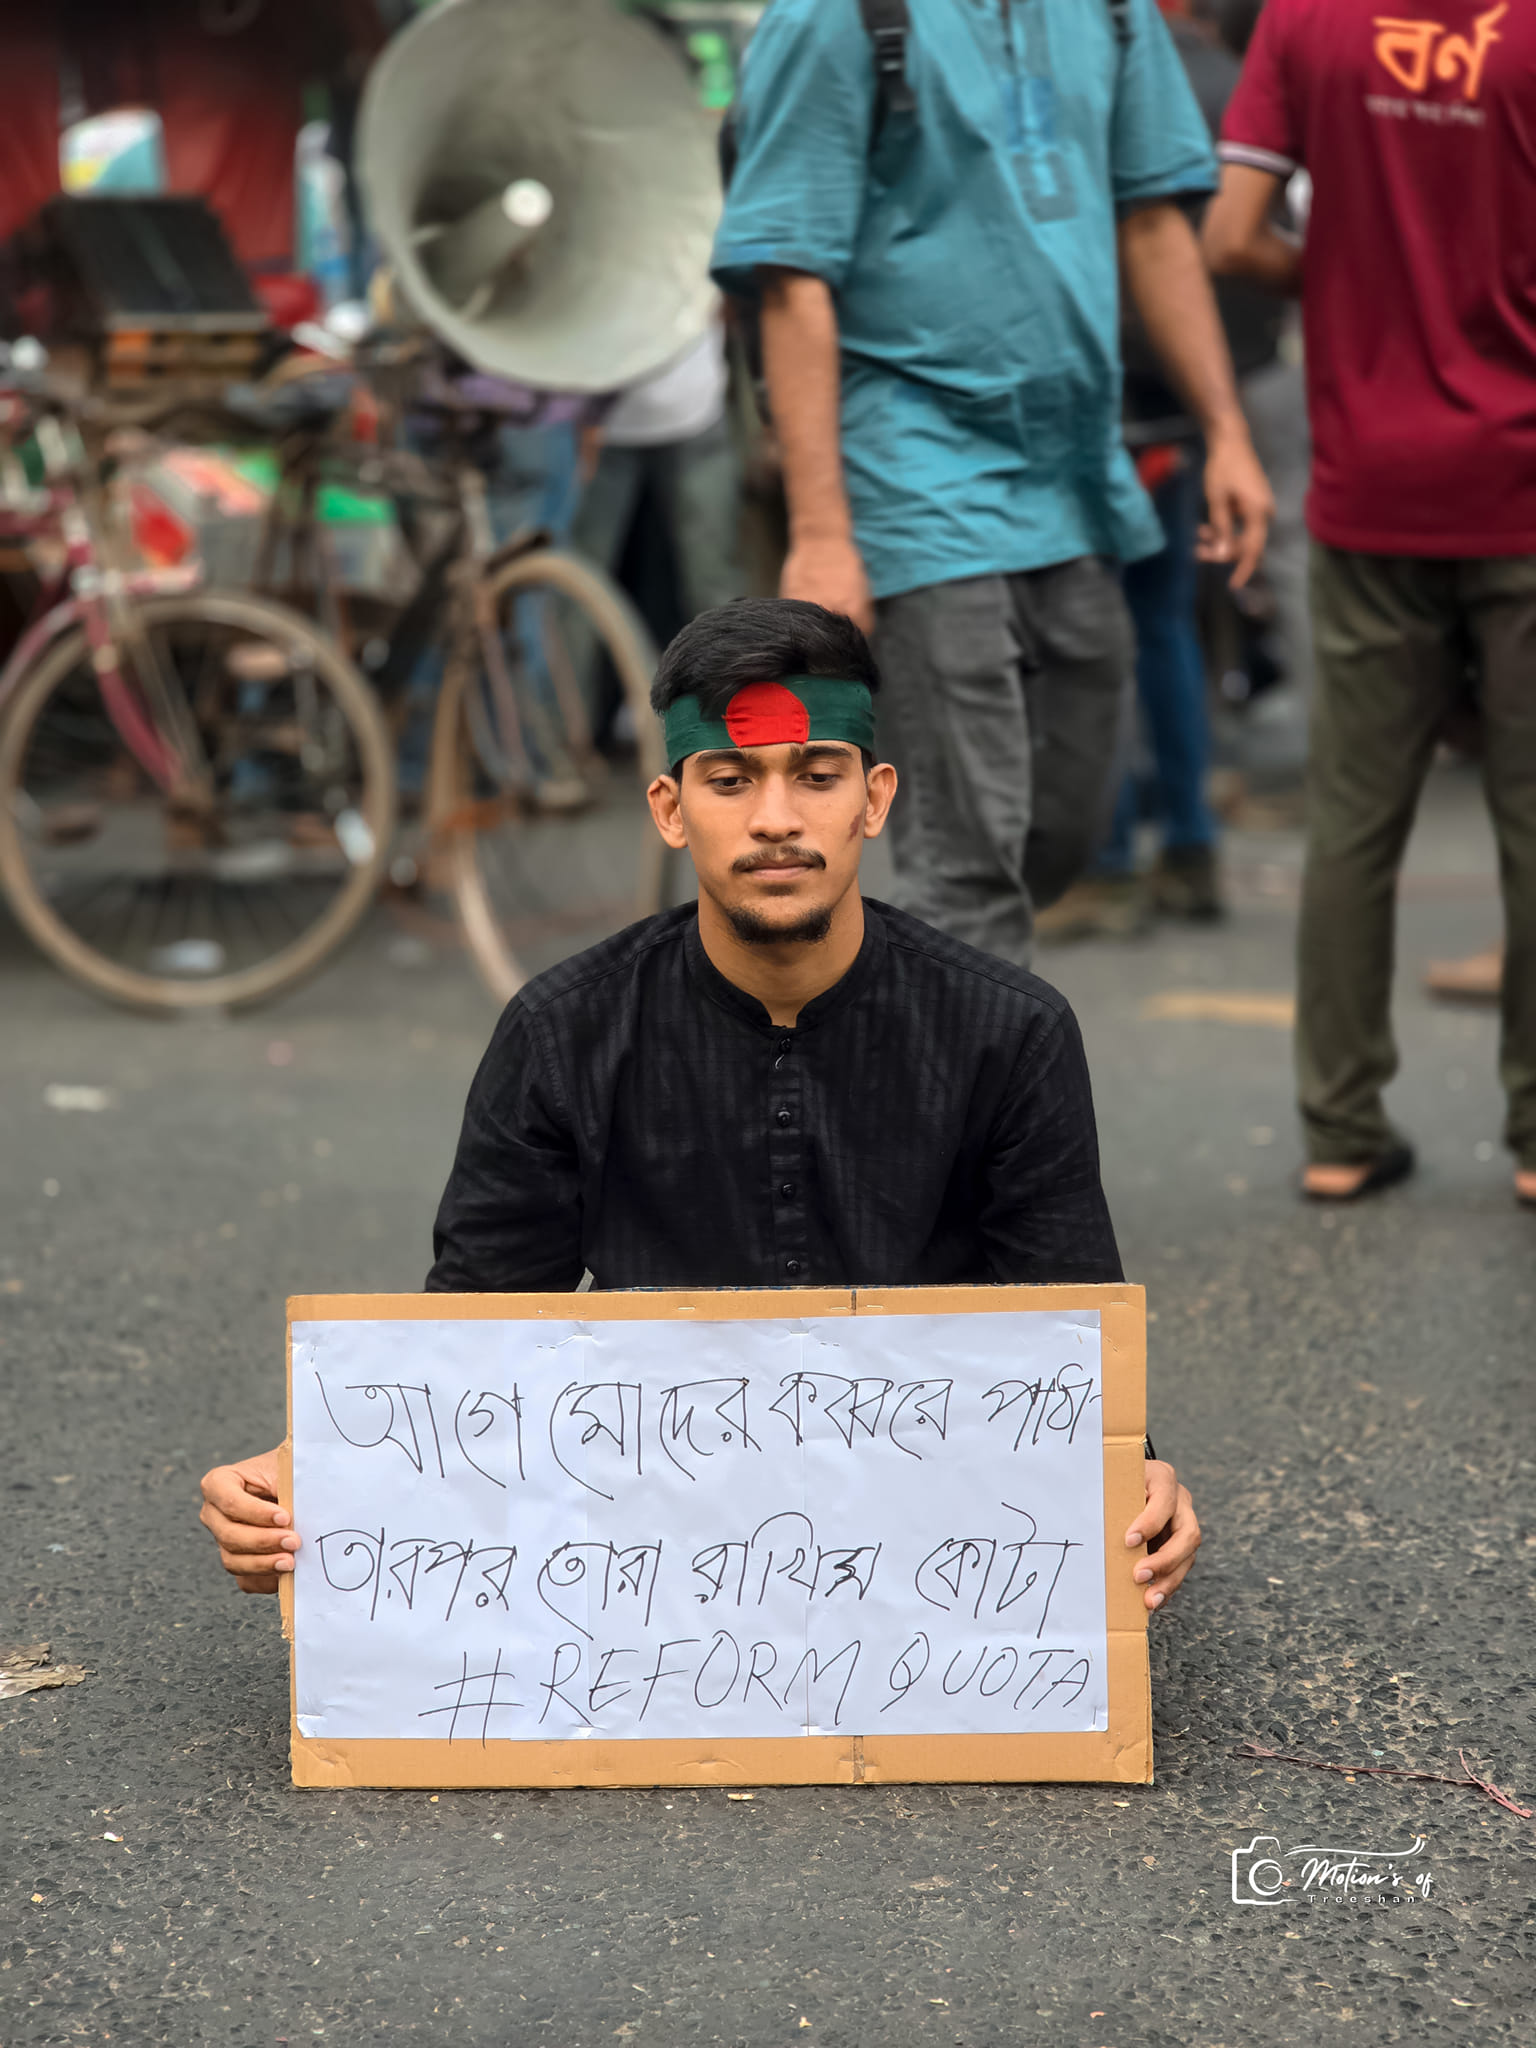 বর্ণ
আগে মোদের কব্বরে পাঠা
তারপর তোরা রাখিস কোটা
#REFORM QUOTA
Motion's of
Treeshan